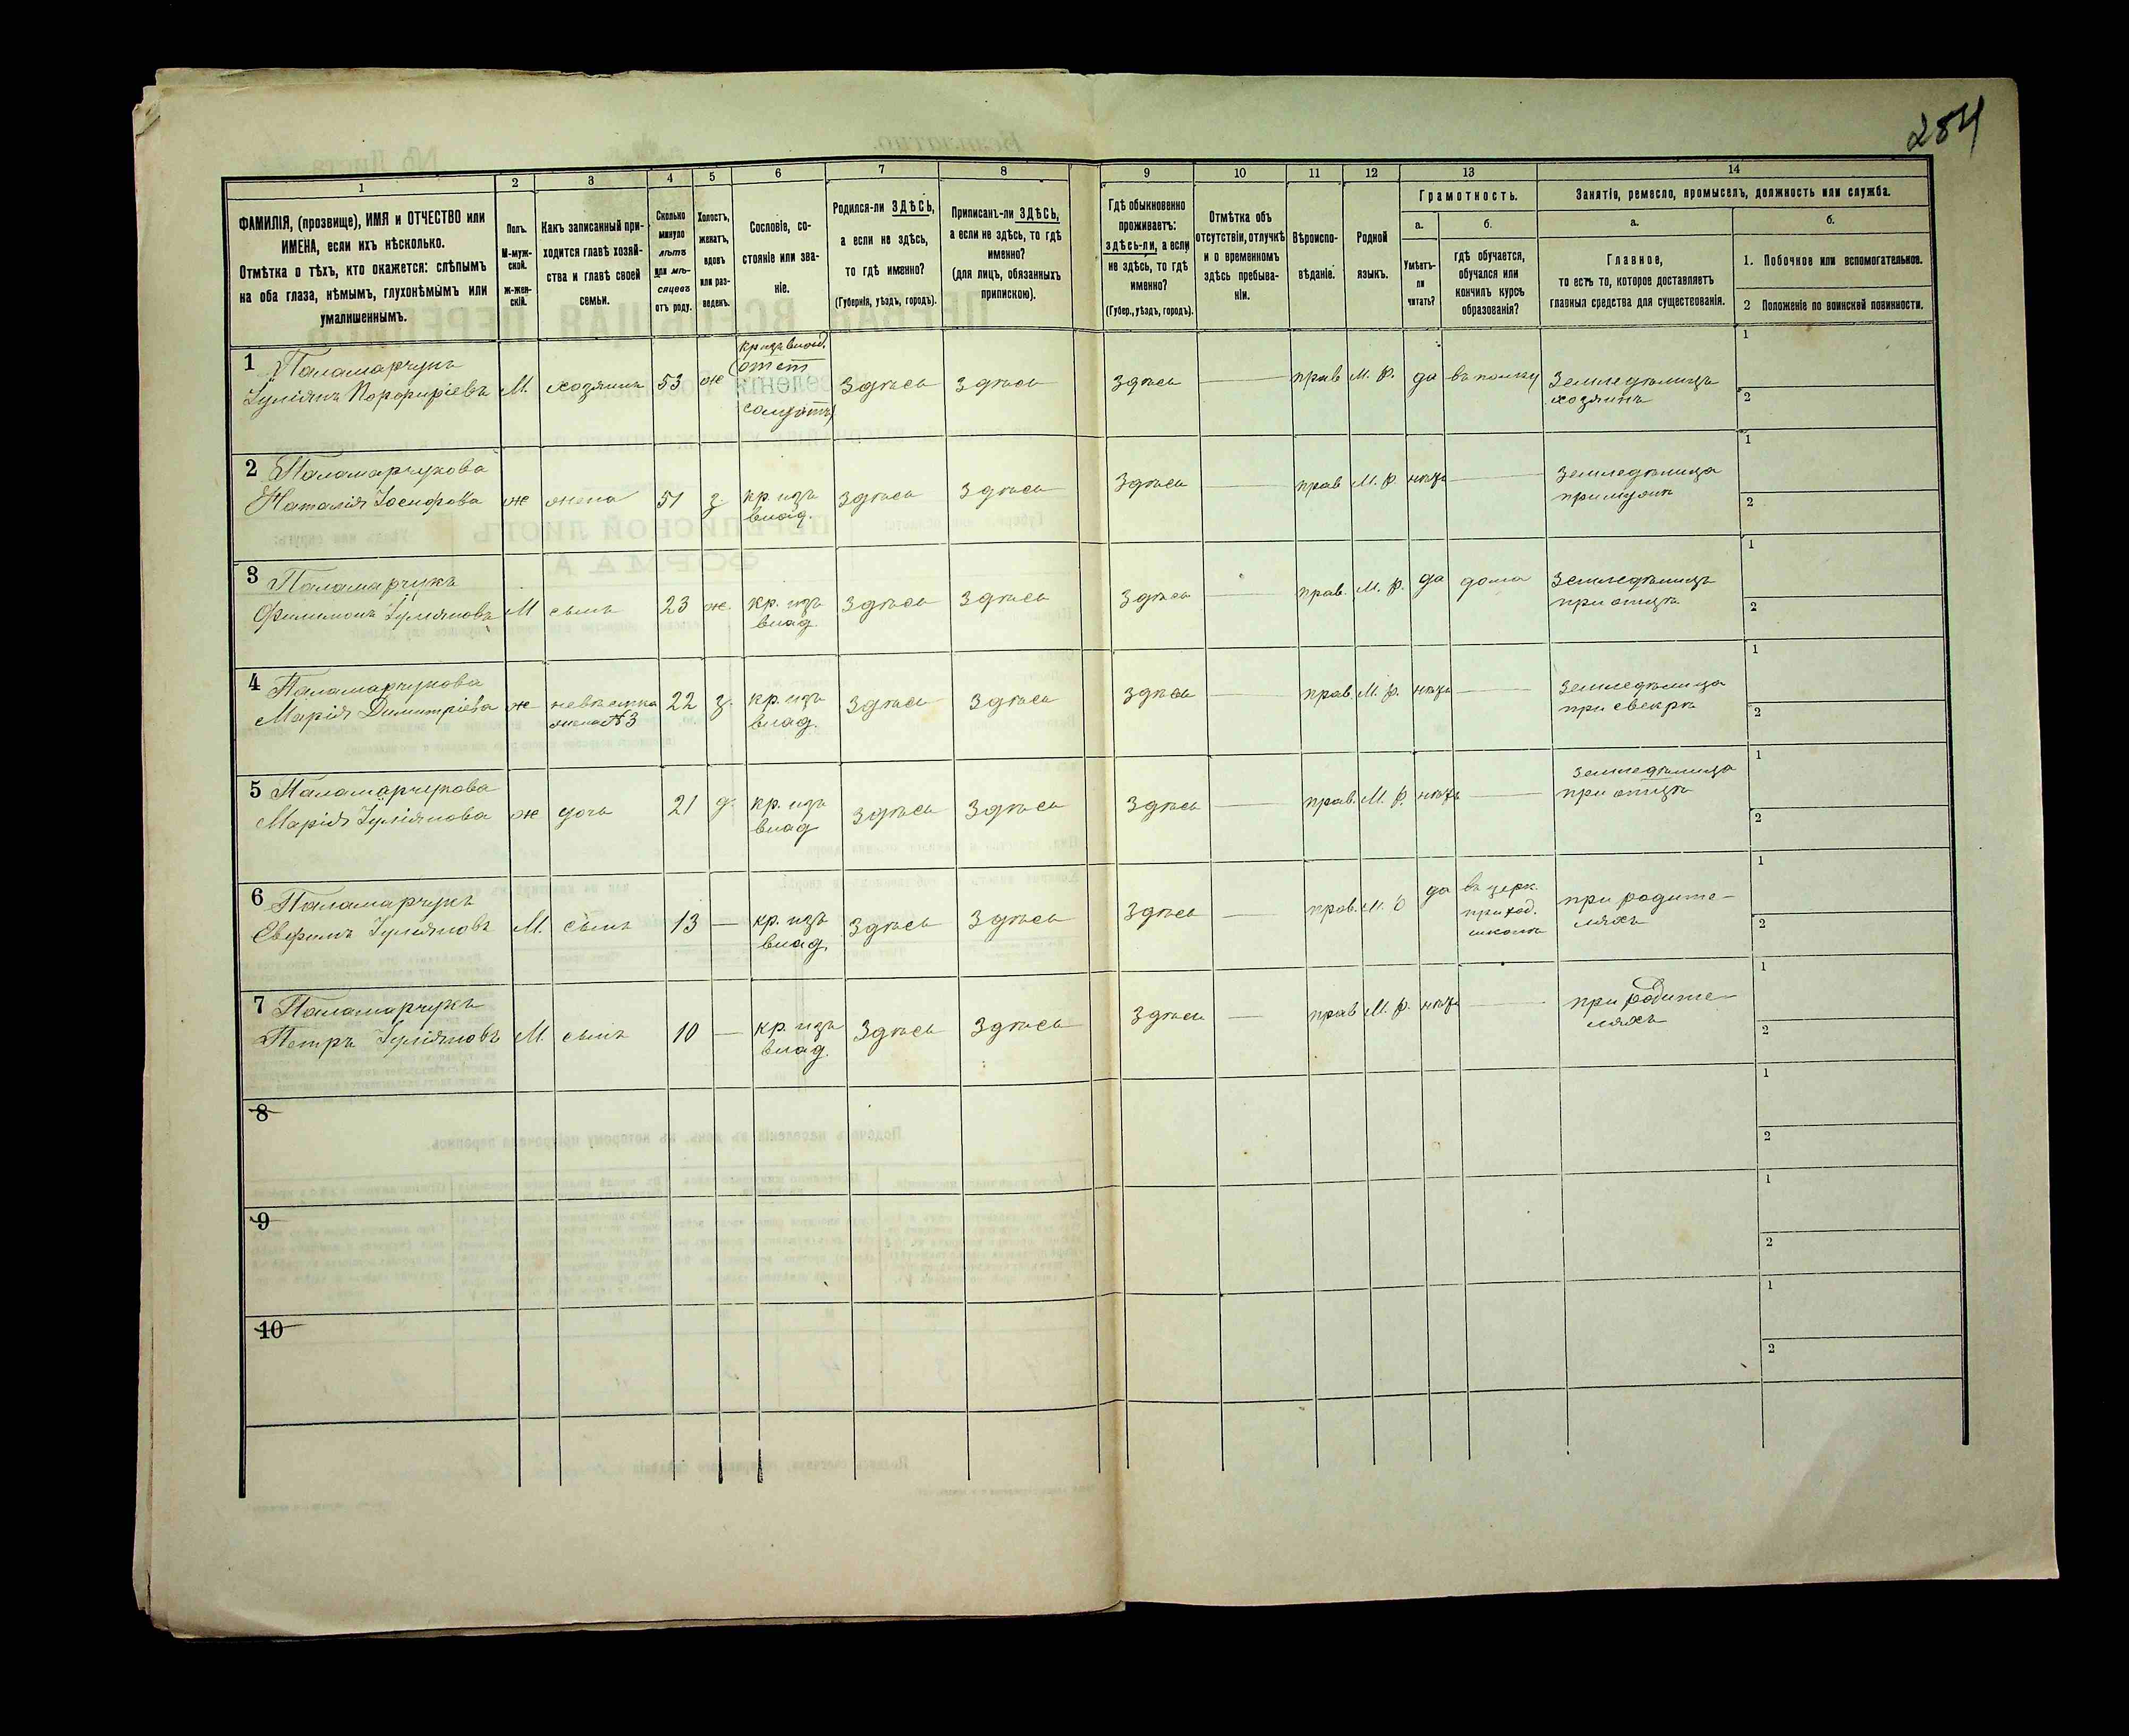 284
1 2 3 4 5 6 7 8 9 10 11 12 13 14
ФАМИЛІЯ, (прозвище), ИМЯ и ОТЧЕСТВО или
ИМЕНА, если ихъ нѣсколько.
Отмѣтка о тѣхъ, кто окажется: слѣпымъ
на оба глаза, нѣмымъ, глухонѣмымъ или
умалишеннымъ.
Полъ.
М-муж-
ской.
ж-жен-
скій.
Какъ записанный при-
ходится главѣ хозяй-
ства и главѣ своей
семьи.
Сколько
минуло
лѣтъ
или мѣ-
сяцевъ
отъ роду.
Холостъ,
женатъ,
вдовъ
или раз-
веденъ.
Сословіе, со-
стояніе или зва-
ніе.
Родился-ли ЗДѢСЬ,
а если не здѣсь,
то гдѣ именно?
(Губернія, уѣздъ, городъ).
Приписанъ-ли ЗДѢСЬ,
а если не здѣсь, то гдѣ
именно?
(для лицъ, обязанныхъ
припискою).
Гдѣ обыкновенно
проживаетъ:
здѣсь-ли, а если
не здѣсь, то гдѣ
именно?
(Губер., уѣздъ, городъ).
Отмѣтка объ
отсутствіи, отлучкѣ
и о временномъ
здѣсь пребыва-
ніи.
Вѣроиспо-
вѣданіе.
Родной
языкъ.
Грамотность.
а.
Умѣетъ-
ли
читать?
б.
гдѣ обучается,
обучался или
кончилъ курсъ
образованія?
Занятія, ремесло, промыселъ, должность или служба.
а.
Главное,
то есть то, которое доставляетъ
главныя средства для существованія.
б.
1. Побочное или вспомогательное.
2 Положеніе по воинской повинности.
1 Паламарчукъ
Іуліянъ Порфиріевъ М. хозяинъ 53 ж
кр. изъ влад.
(отст.
солдатъ)
Здѣсь Здѣсь Здѣсь — прав М. р. да въ полку
Земледѣлецъ
хозяинъ
1
2
2 Паламарчукова
Наталія Іосифова ж жена 51 з.
кр. изъ
влад.
Здѣсь Здѣсь Здѣсь — прав М. р. нѣтъ —
Земледѣлица
при мужѣ
1
2
3 Паламарчукъ
Филимонъ Іуліяновъ М сынъ 23 ж.
кр. изъ
влад.
Здѣсь Здѣсь Здѣсь — прав. М. р. да дома
Земледѣлецъ
при отцѣ
1
2
4 Паламарчукова
Марія Димитріева ж невѣстка 22 з.
жена №3
кр. изъ
влад.
Здѣсь Здѣсь Здѣсь — прав. М. р. нѣтъ —
Земледѣлица
при свекрѣ
1
2
5 Паламарчукова
Марія Іуліянова ж дочь 21 д.
кр. изъ
влад
Здѣсь Здѣсь Здѣсь — прав. М. р. нѣтъ —
Земледѣлица
при отцѣ
1
2
6 Паламарчукъ
Евфимъ Іуліяновъ М. сынъ 13 —
кр. изъ
влад.
Здѣсь Здѣсь Здѣсь — прав. М. р да
въ церк.
приход.
школѣ
при родите-
ляхъ
1
2
7 Паламарчукъ
Петръ Іуліяновъ М. сынъ 10 —
кр. изъ
влад.
Здѣсь Здѣсь Здѣсь — прав М. р. нѣтъ —
при родите-
ляхъ
1
2
8
1
2
9
1
2
10
1
2